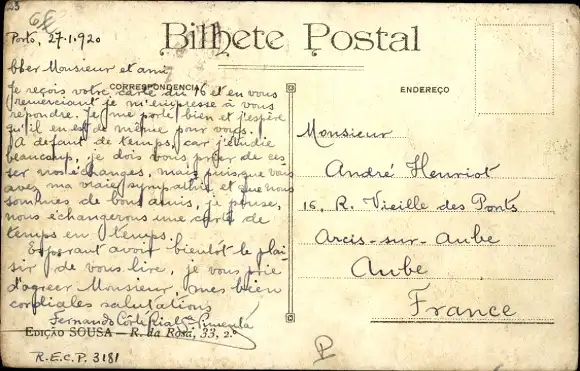 Porto, 27-1-920
Bilhete Postal
Cher Monsieur et ami
CORRESPONDENCIA
Je reçois votre carte du 16 et en vous
remerciant je m'empresse à vous
répondre. Je me porte bien et j'espère
qu'il en est de même pour vous.
A défaut de temps, car j'étudie
beaucoup, je dois vous prier de ces-
ser nos échanges, mais puisque vous
avez ma vraie sympathie et que nous
sommes de bons amis, je pense,
nous échangerons une carte de
temps en temps.
Esperant avoir bientôt le plai-
sir de vous lire, je vous prie
d'agréer Monsieur, mes bien
cordiales salutations
Fernando Côrte Rial Pimenta
EDIÇÃO SOUSA — R. da Rosa, 33, 2.º
R.E.C.P. 3181
ENDEREÇO
Monsieur
André Henriot
16, R. Vieille des Ponts
Arcis-sur-Aube
Aube
France
P